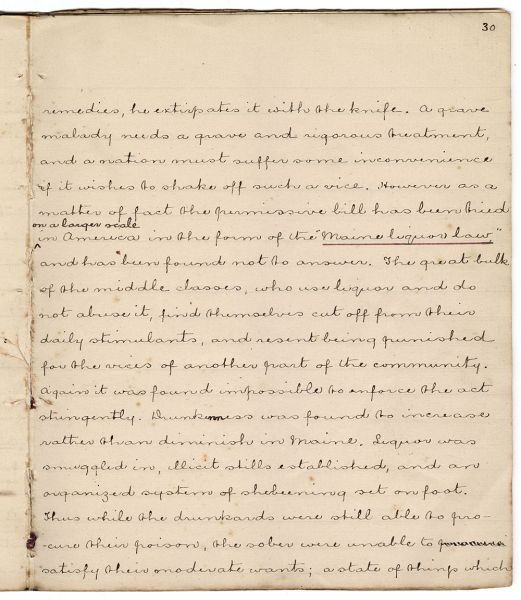 30
remedies, he extirpates it with the knife. A grave
malady needs a grave and rigorous treatment,
and a nation must suffer some inconvenience
if it wishes to shake off such a vice. However as a
matter of fact the permissive bill has been tried
on a larger scale
in America in the form of the "Maine liquor law,"
and has been found not to answer. The great bulk
of the middle classes, who use liquor and do
not abuse it, find themselves cut off from their
daily stimulants, and resent being punished
for the vices of another part of the community.
Again it was found impossible to enforce the act
stringently. Drunkenness was found to increase
rather than diminish in Maine. Liquor was
smuggled in, illicit stills established, and an
organized system of shebeening set on foot.
Thus while the drunkards were still able to pro-
cure their poison, the sober were unable to
satisfy their moderate wants; a state of things which